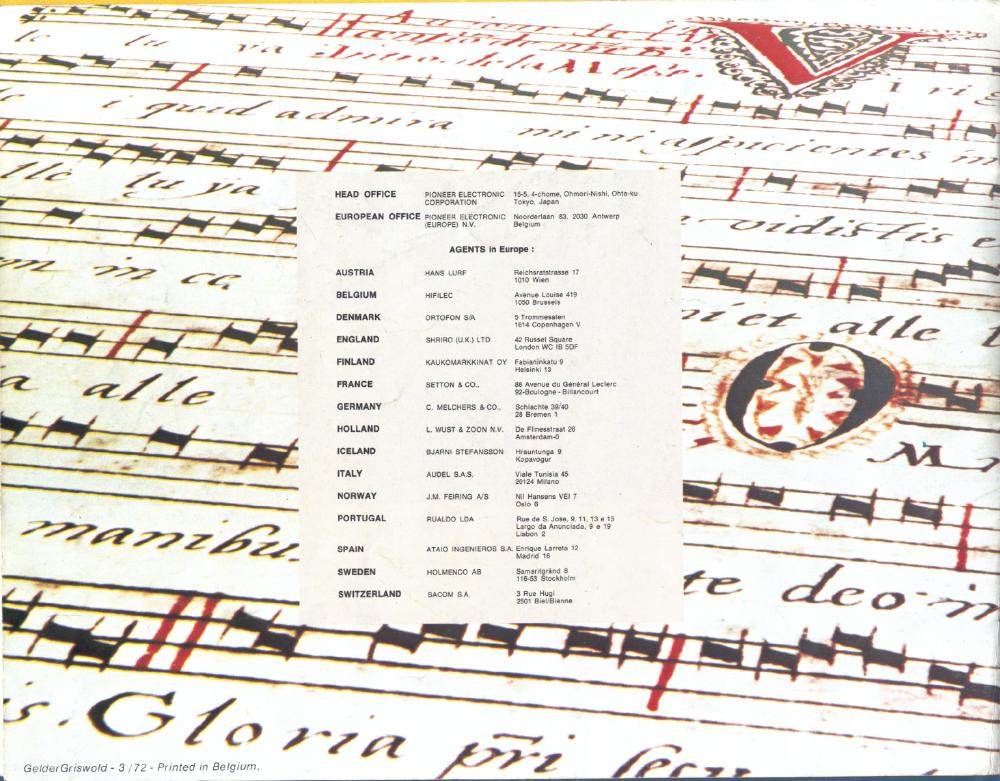 Aurion de l'A
Hœntis de nõre Sr.
Intro. de la Messe.
le lu ya
V iri g
c i quid admira mini aspicientes in
lle lu ya
vidistis e
m in ce
ni et alle l
a alle
O
M
manibu
te deo in
is. Gloria pri secu
HEAD OFFICE PIONEER ELECTRONIC 15-5, 4-chome, Ohmori-Nishi, Ohta-ku
CORPORATION Tokyo, Japan
EUROPEAN OFFICE PIONEER ELECTRONIC Noorderlaan 83, 2030 Antwerp
(EUROPE) N.V. Belgium
AGENTS in Europe :
AUSTRIA HANS LURF Reichsratstrasse 17
1010 Wien
BELGIUM HIFILEC Avenue Louise 419
1050 Brussels
DENMARK ORTOFON S/A 5 Trommesalen
1614 Copenhagen V
ENGLAND SHRIRO (U.K.) LTD 42 Russel Square
London WC IB 5DF
FINLAND KAUKOMARKKINAT OY Fabianinkatu 9
Helsinki 13
FRANCE SETTON & CO., 88 Avenue du Général Leclerc
92-Boulogne - Billancourt
GERMANY C. MELCHERS & CO., Schlachte 39/40
28 Bremen 1
HOLLAND L. WUST & ZOON N.V. De Flinesstraat 26
Amsterdam-0
ICELAND BJARNI STEFANSSON Hrauntunga 9
Kopavogur
ITALY AUDEL S.A.S. Viale Tunisia 45
20124 Milano
NORWAY J.M. FEIRING A/S Nil Hansens VEI 7
Oslo 6
PORTUGAL RUALDO LDA Rue de S. Jose, 9, 11, 13 e 15
Largo da Anunciada, 9 e 19
Lisbon 2
SPAIN ATAIO INGENIEROS S.A. Enrique Larreta 12
Madrid 16
SWEDEN HOLMENCO AB Samaritgränd 8
116-53 Stockholm
SWITZERLAND SACOM S.A. 3 Rue Hugi
2501 Biel/Bienne
GelderGriswold - 3 /72 - Printed in Belgium.